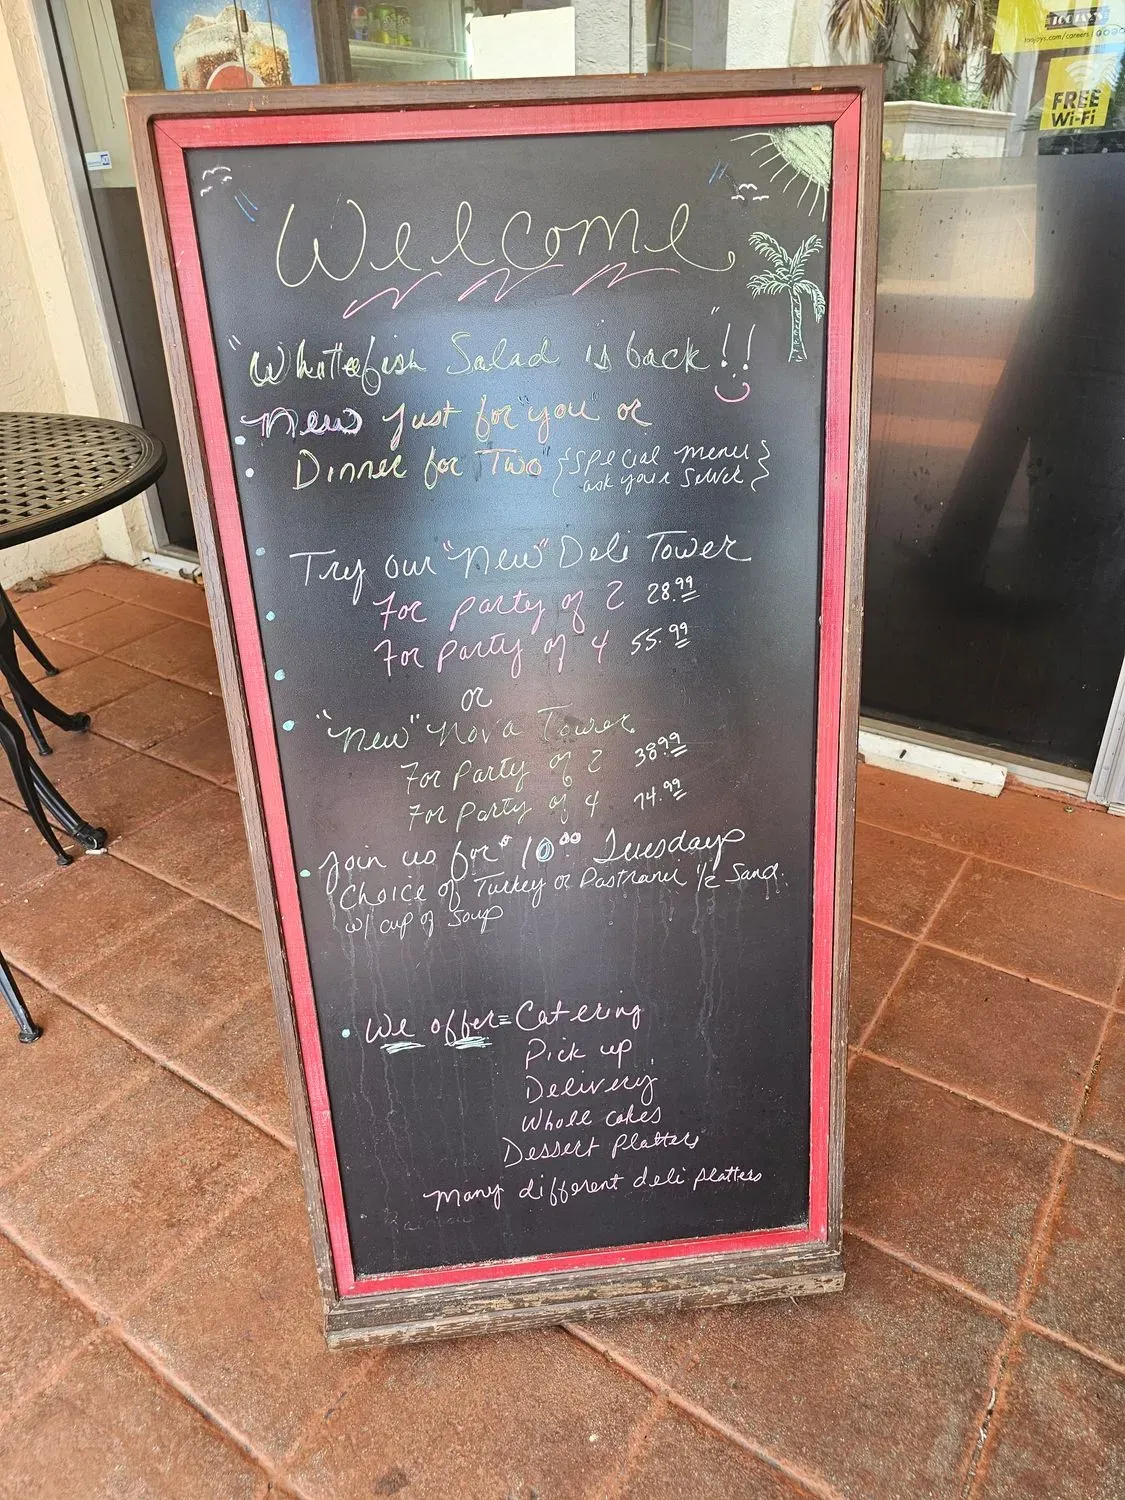 Welcome
"Whitefish Salad is back"!!
New Just for "you" or
Dinner for "Two" {Special menu
ask your server}
Try our "New" Deli Tower
For party of 2 28.99
For party of 4 55.99
or
"New" Nova Tower
For party of 2 38.99
For party of 4 74.99
Join us for $10.00 Tuesdays
Choice of Turkey or Pastrami 1/2 Sand.
w/ cup of soup
We offer= Catering
Pick up
Delivery
Whole cakes
Dessert Platters
Many different deli platters
TOOJAYS
toojays.com/careers
FREE
Wi-Fi